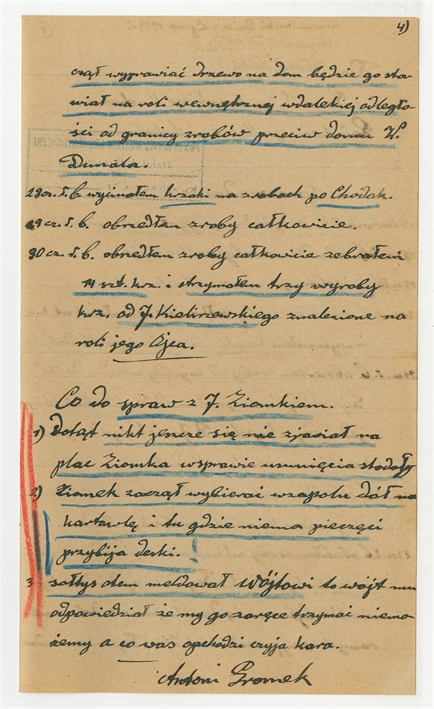 4)
czął wyprawiać drzewo na dom będzie go sta-
wiał na roli wewnętrznej wdalekiej odległo-
ści od granicy zrobów przeciw domu W.
Dunala.
28 cz. t. b. wycinałem krzaki na zrobach po Chodak.
29 cz. t. b. obszedłem zroby całkowicie.
30 cz. t. b. obszedłem zroby całkowicie zebrałem
14 szt. krz. i otrzymałem trzy wyroby
krz. od J. znalezione na
roli jego Ojca.
Co do spraw z J. Ziomkiem.
1) Dotąt nikt jeszcze się nie zjawiał na
plac Ziomka wsprawie usunięcia stodoły
2) Ziomek zaczął wybierać wzapolu dół na
kartawlę i tu gdzie niema pieczęci
przybija deski.
3 sołtys otem meldował Wójtowi to wójt mu
odpowiedział że my go zaręce trzymać niemo-
żemy a co was opchodzi czyja kara.
Antoni Gromek